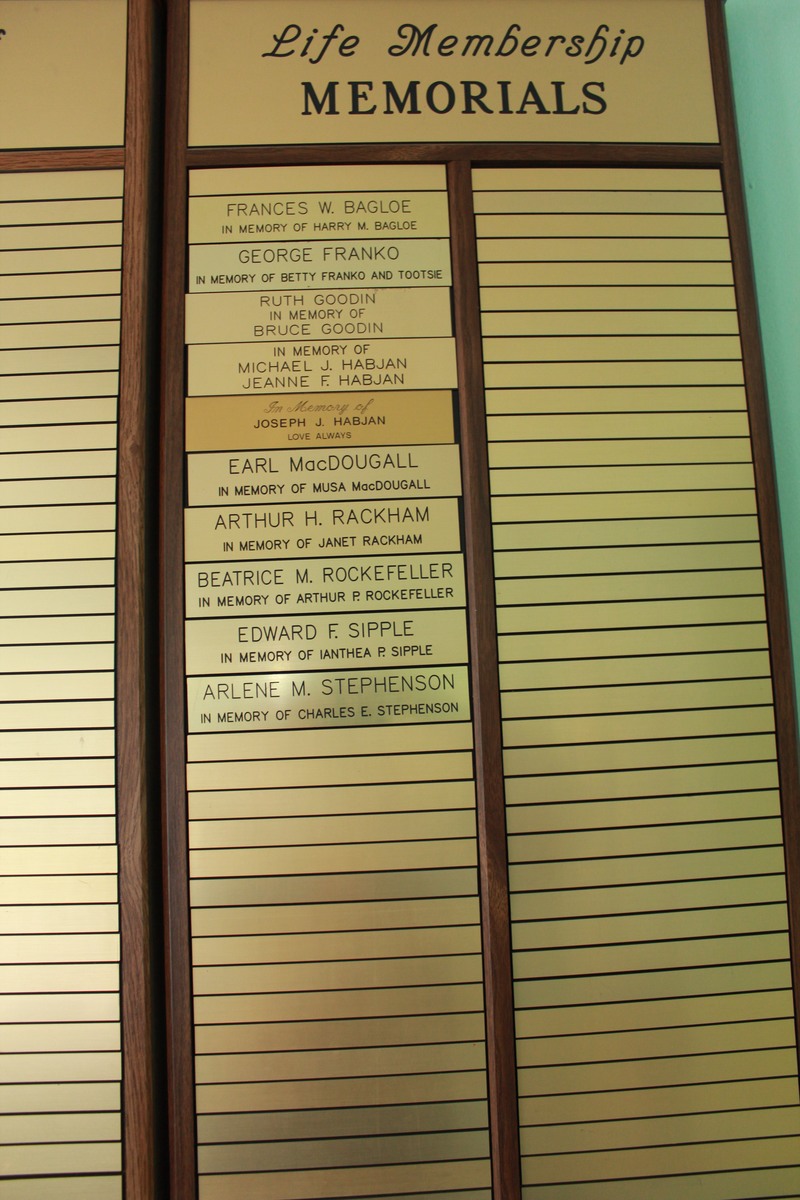 Life Membership
MEMORIALS
FRANCES W. BAGLOE
IN MEMORY OF HARRY M. BAGLOE
GEORGE FRANKO
IN MEMORY OF BETTY FRANKO AND TOOTSIE
RUTH GOODIN
IN MEMORY OF
BRUCE GOODIN
IN MEMORY OF
MICHAEL J. HABJAN
JEANNE F. HABJAN
In Memory of
JOSEPH J. HABJAN
LOVE ALWAYS
EARL MacDOUGALL
IN MEMORY OF MUSA MacDOUGALL
ARTHUR H. RACKHAM
IN MEMORY OF JANET RACKHAM
BEATRICE M. ROCKEFELLER
IN MEMORY OF ARTHUR P. ROCKEFELLER
EDWARD F. SIPPLE
IN MEMORY OF IANTHEA P. SIPPLE
ARLENE M. STEPHENSON
IN MEMORY OF CHARLES E. STEPHENSON